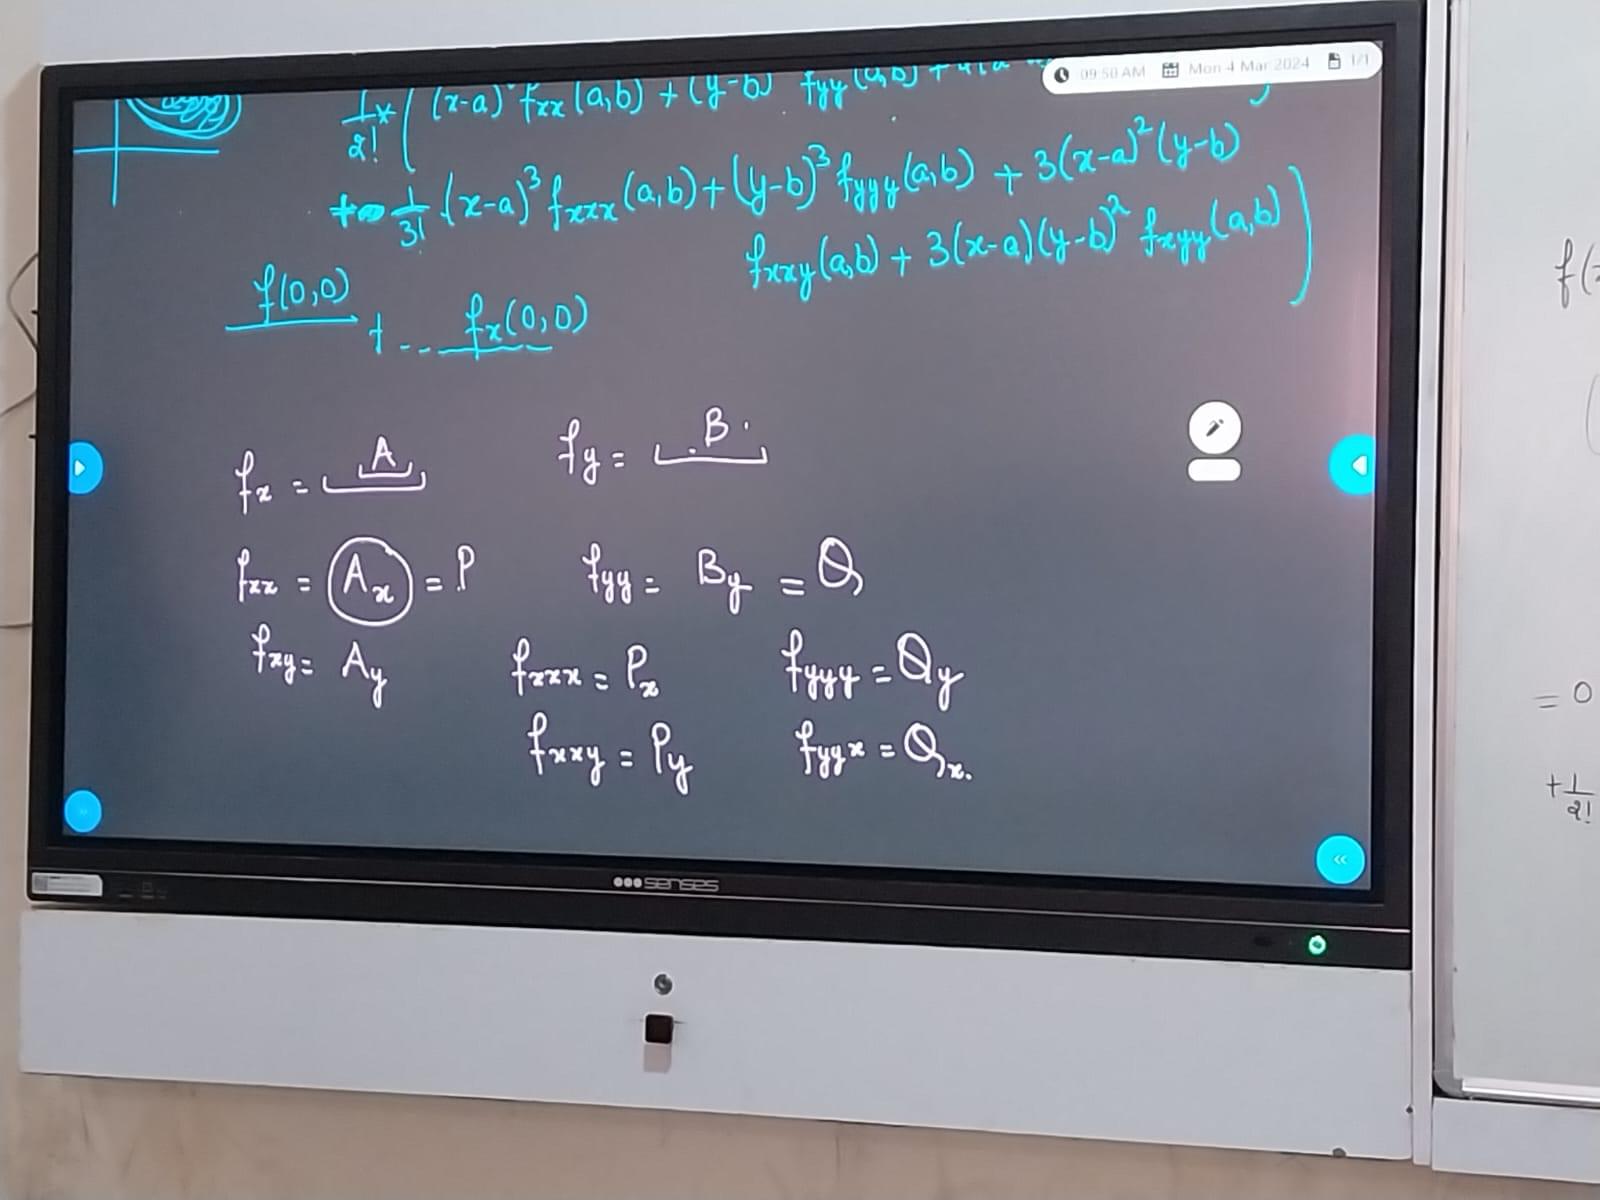 09:50 AM Mon 4 Mar 2024 1/1
1/2! * ( (x-a) fxx (a,b) + (y-b) fyy (a,b) +
+ 1/3! (x-a)³ fxxx (a,b) + (y-b)³ fyyy (a,b) + 3(x-a)² (y-b)
fxxy (a,b) + 3(x-a)(y-b)² fxyy (a,b) )
f(0,0) + -- fx(0,0)
fx = A fy = B
fxx = Ax = P fyy = By = Q
fxy = Ay fxxx = Px fyyy = Qy
fxxy = Py fyyx = Qx.
senses
f(
= 0
+ 1/2!